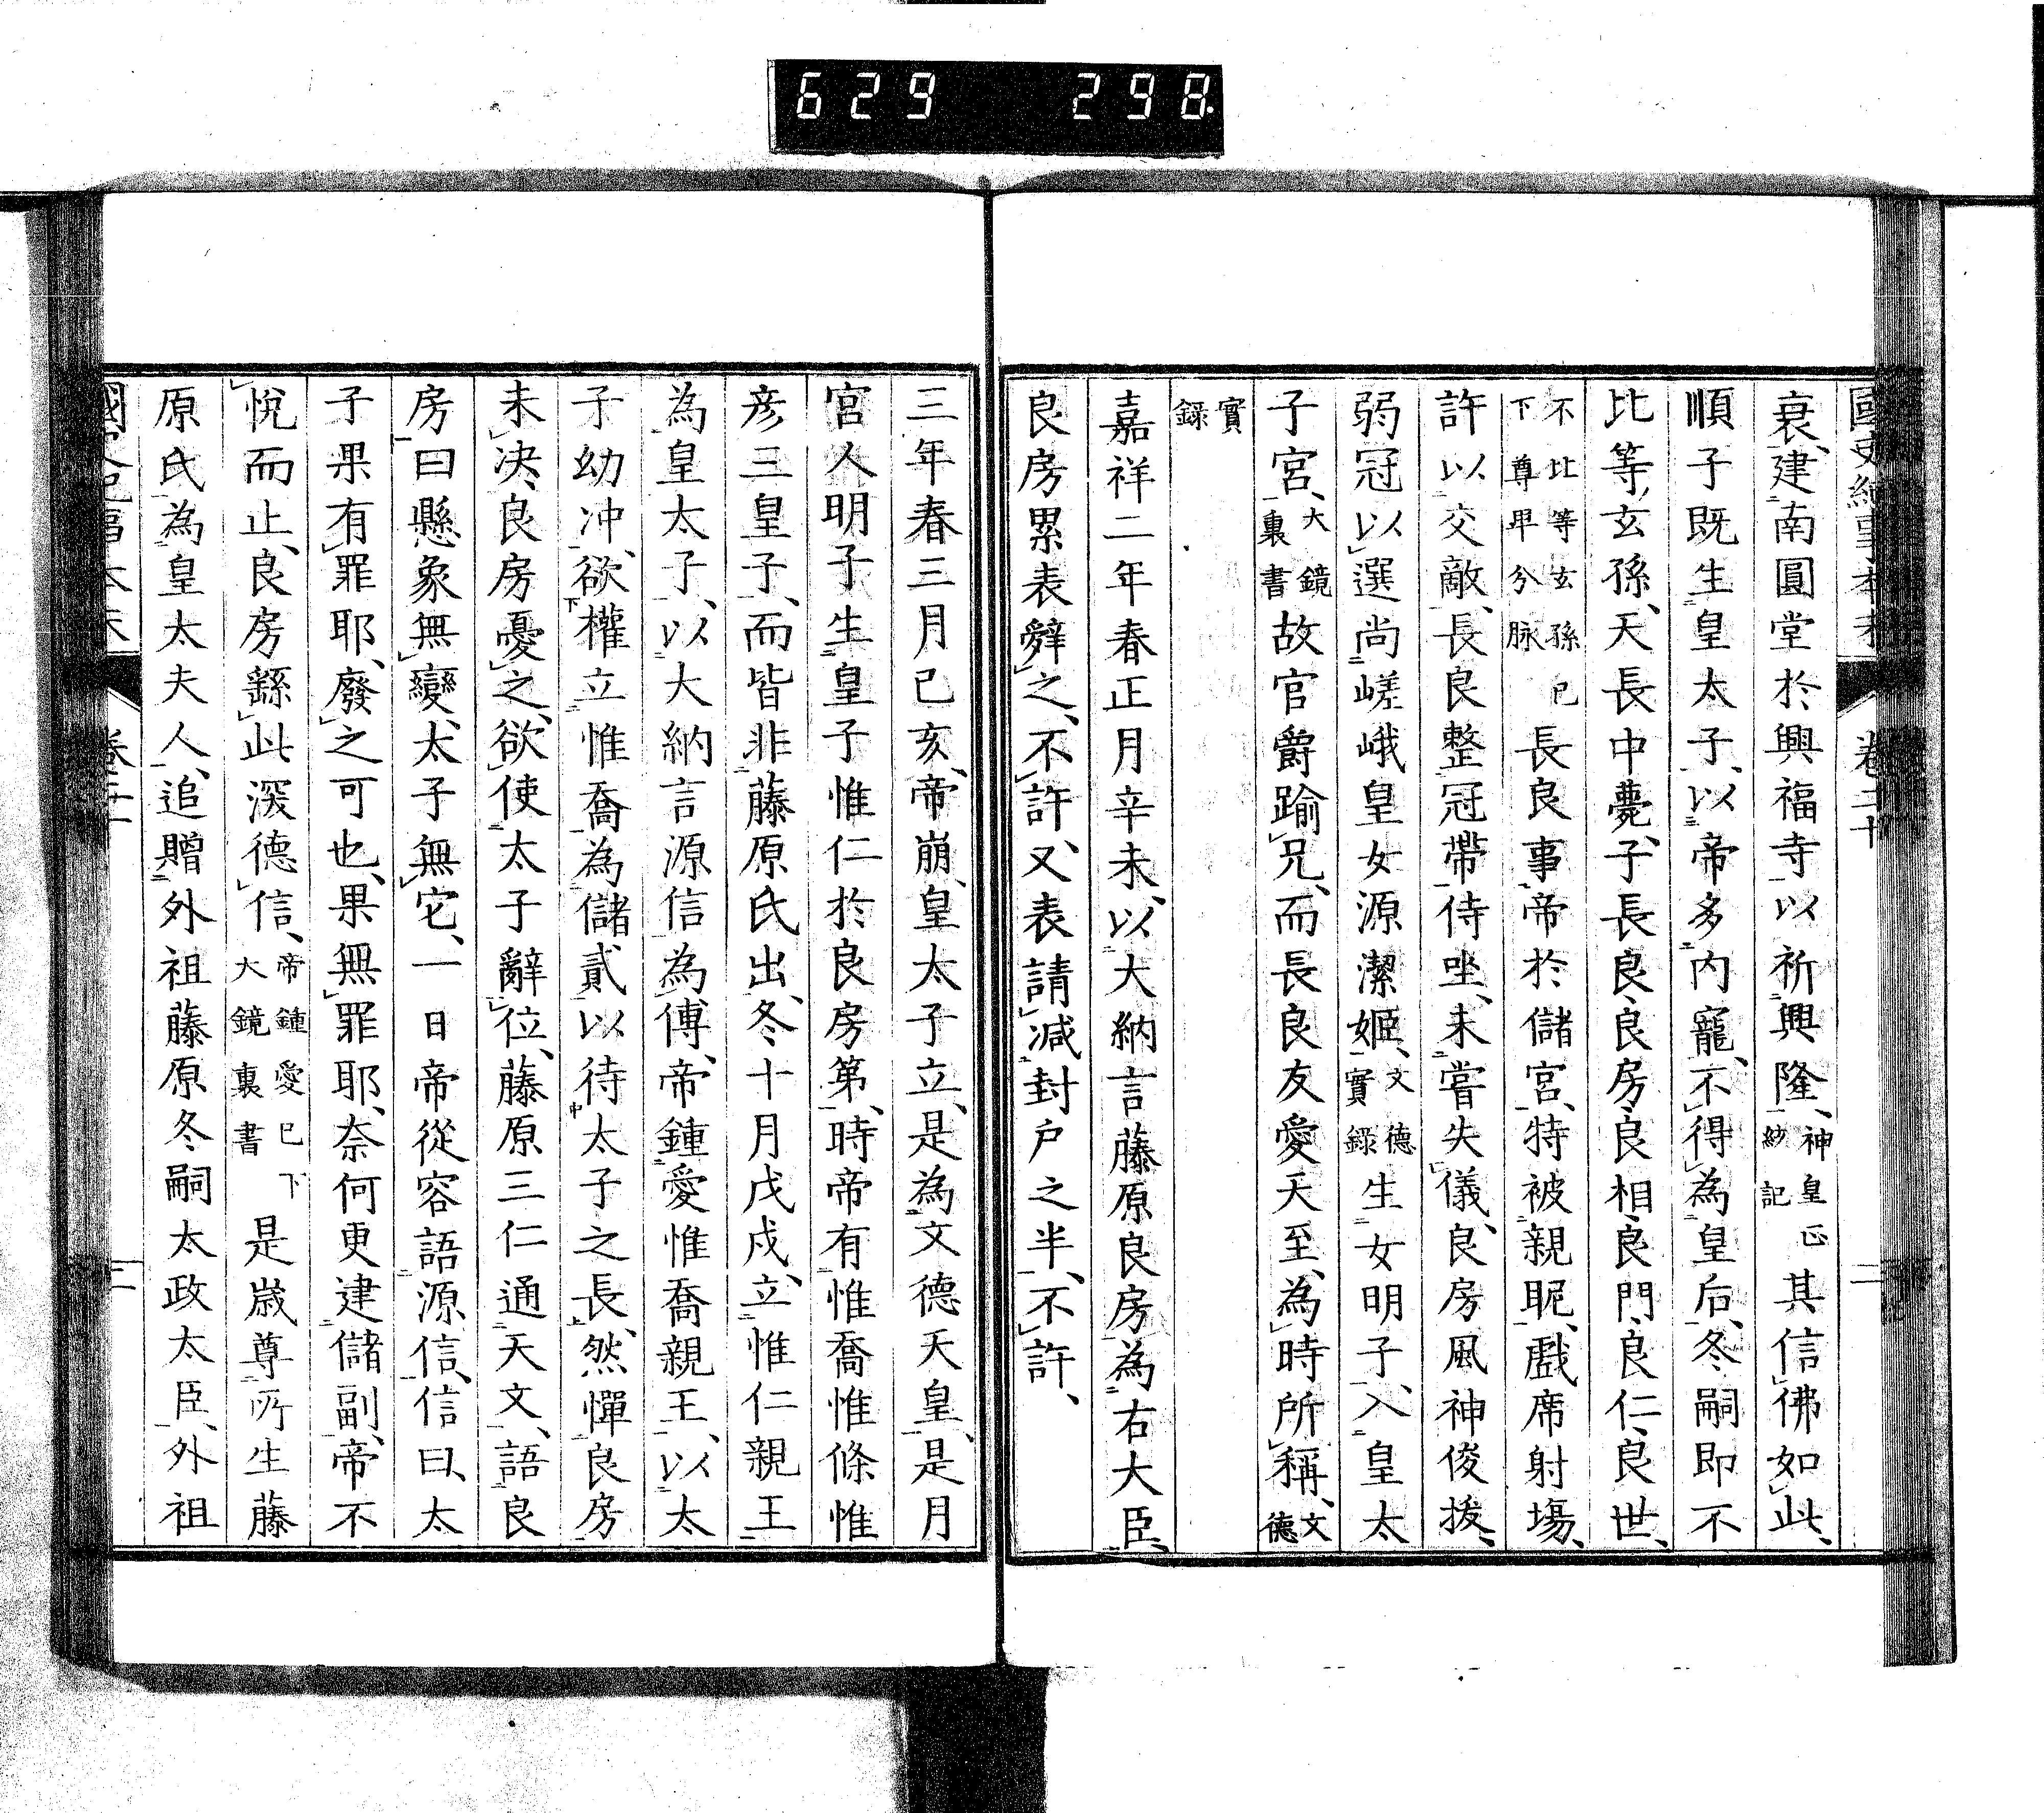 629 298
衰、建南圓堂於興福寺以祈興隆、神皇正紗記其信佛如此、
順子既生皇太子、以帝多内寵、不得為皇后、冬嗣即不
比等玄孫、天長中薨、子長良、良房、良相、良門、良仁、良世、
不比等玄孫已下尊卑分脉長良事帝於儲宮、特被親昵、戲席射場、
許以交敵、長良整冠帶侍坐、未嘗失儀、良房風神俊拔、
弱冠以選尚嵯峨皇女源潔姬、文德實錄生女明子、入皇太
子宮、大鏡裏書故官爵踰兄、而長良友愛天至、為時所稱、文德
實錄
嘉祥二年春正月辛未、以大納言藤原良房為右大臣、
良房累表辭之、不許、又表請減封户之半、不許、
三年春三月己亥、帝崩、皇太子立、是為文德天皇、是月
宮人明子生皇子惟仁於良房第、時帝有惟喬惟條惟
彦三皇子、而皆非藤原氏出、冬十月戊戌、立惟仁親王
為皇太子、以大納言源信為傅、帝鍾愛惟喬親王、以太
子幼冲、欲權立惟喬為儲貳以待太子之長、然憚良房
未决、良房憂之、欲使太子辭位、藤原三仁通天文、語良
房曰懸象無變、太子無它、一日帝從容語源信、信曰、太
子果有罪耶、廢之可也、果無罪耶、奈何更建儲副、帝不
悅而止、良房繇此深德信、帝鍾愛已下大鏡裏書是歲尊所生藤
原氏為皇太夫人、追贈外祖藤原冬嗣太政太臣、外祖